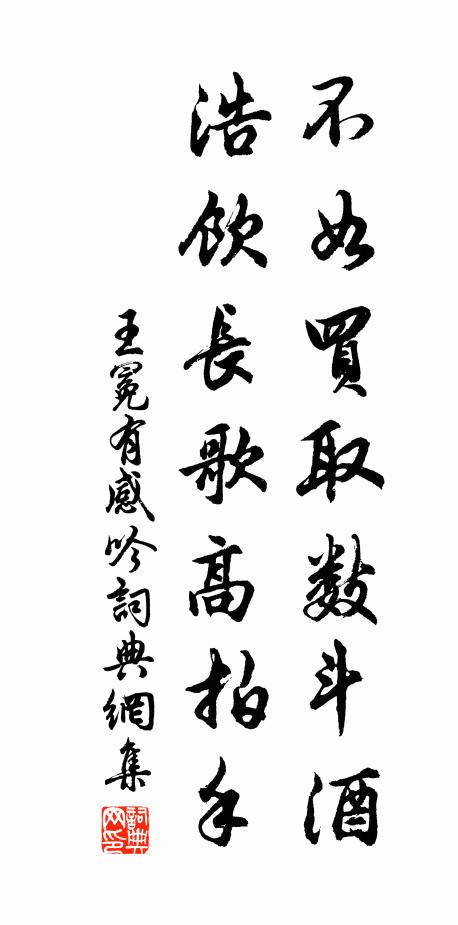 不如買取數斗酒
浩飲長歌高拍手
王冕有感吟詞典網集
詞典网印